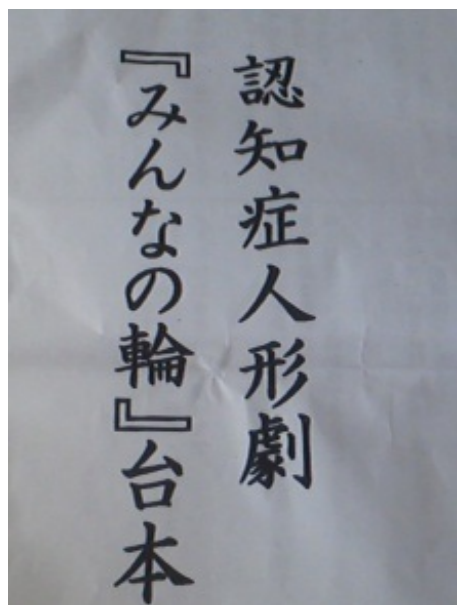 認知症人形劇
『みんなの輪』台本